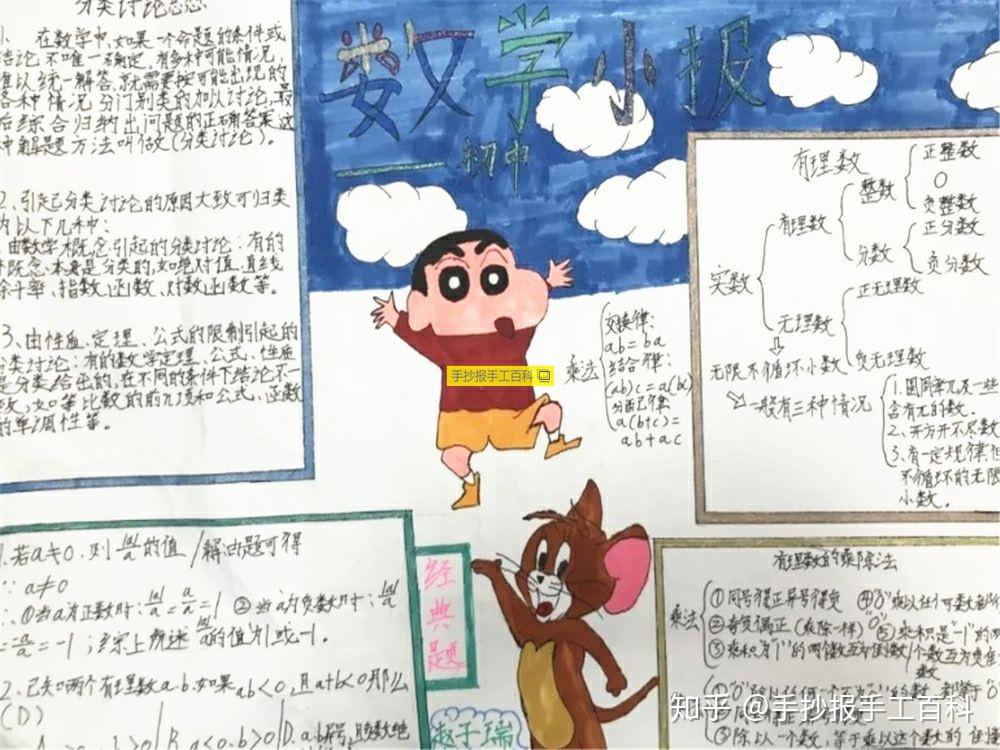 数学小报
初中
分类讨论思想
1、在数学中,如果一个命题的条件或
结论不唯一确定,有多种可能情况,
难以统一解答,就需要按可能出现的
各种情况分门别类的加以讨论,最
后综合归纳出问题的正确答案,这
种解题方法叫做(分类讨论)。
2、引起分类讨论的原因大致可归类
为以下几种:
由数学概念引起的分类讨论:有的
概念本身是分类的,如绝对值、直线
斜率、指数函数、对数函数等。
3、由性质、定理、公式的限制引起的
分类讨论:有的数学定理、公式、性质
是分类给出的,在不同的条件下结论不一
致,如等比数的前n项和公式、函数
的单调性等。
手抄报手工百科
乘法
交换律:
ab=ba
结合律:
(ab)c=a(bc)
分配律
a(b+c)=
ab+ac
有理数
实数
有理数
整数
正整数
0
负整数
分数
正分数
负分数
无理数
正无理数
负无理数
无限不循环小数
一般有三种情况
1.圆周率π及一些
含有π的数.
2、开方开不尽数
3、有一定规律但
不循环的无限
小数.
1.若a≠0.则|a|/a的值/解由题可得
∵a≠0
∴①当a为正数时:|a|/a=a/a=1 ②当a为负数时:|a|/a
=-a/a=-1;综上所述|a|/a的值为1或-1.
2、已知两个有理数a.b.如果ab<0,且a+b<0那么
(D)
a<0.b>0 D.a.b异号,
经典题
赵子瑞
有理数的乘除法
乘法
①同号得正异号得负 ④"0"乘以任何数都
②奇负偶正(乘除一样) ⑤乘积是"-1"的
③乘积为"1"的两个数互为倒数
数
③除以一个数,等于乘以这个数的
知乎 @手抄报手工百科